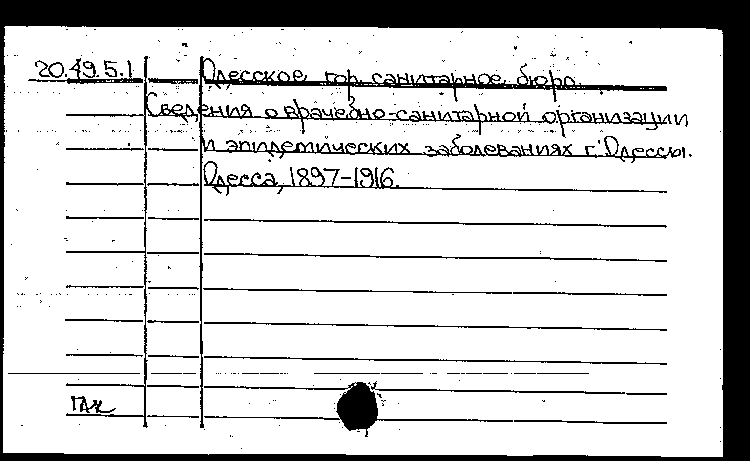 20.49.5.1 Одесское гор. санитарное бюро.
Сведения о врачебно-санитарной организации
и эпидемических заболеваниях г. Одессы.
Одесса, 1897-1916.